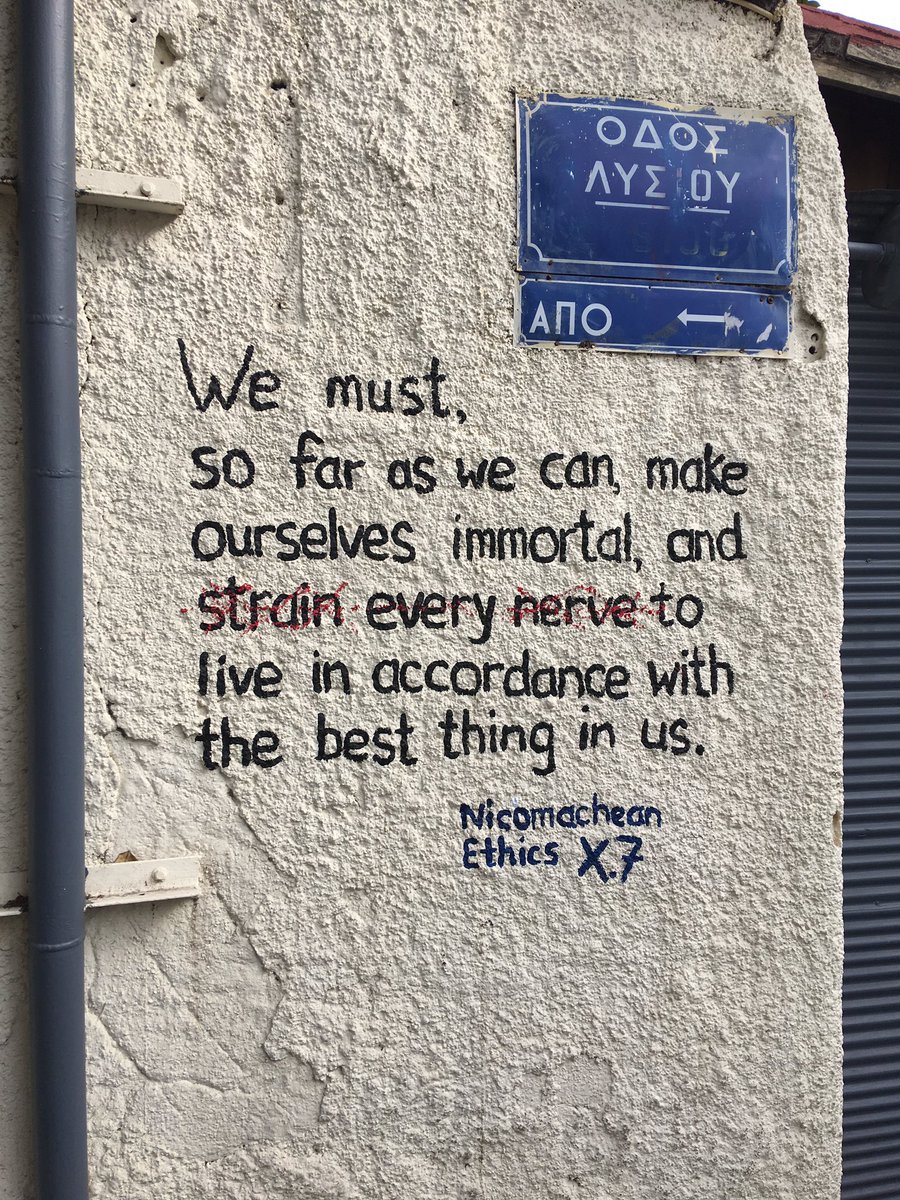 ΟΔΟΣ
ΛΥΣΙΟΥ
ΑΠΟ
We must,
so far as we can, make
ourselves immortal, and
strain every nerve to
live in accordance with
the best thing in us.
Nicomachean
Ethics X.7